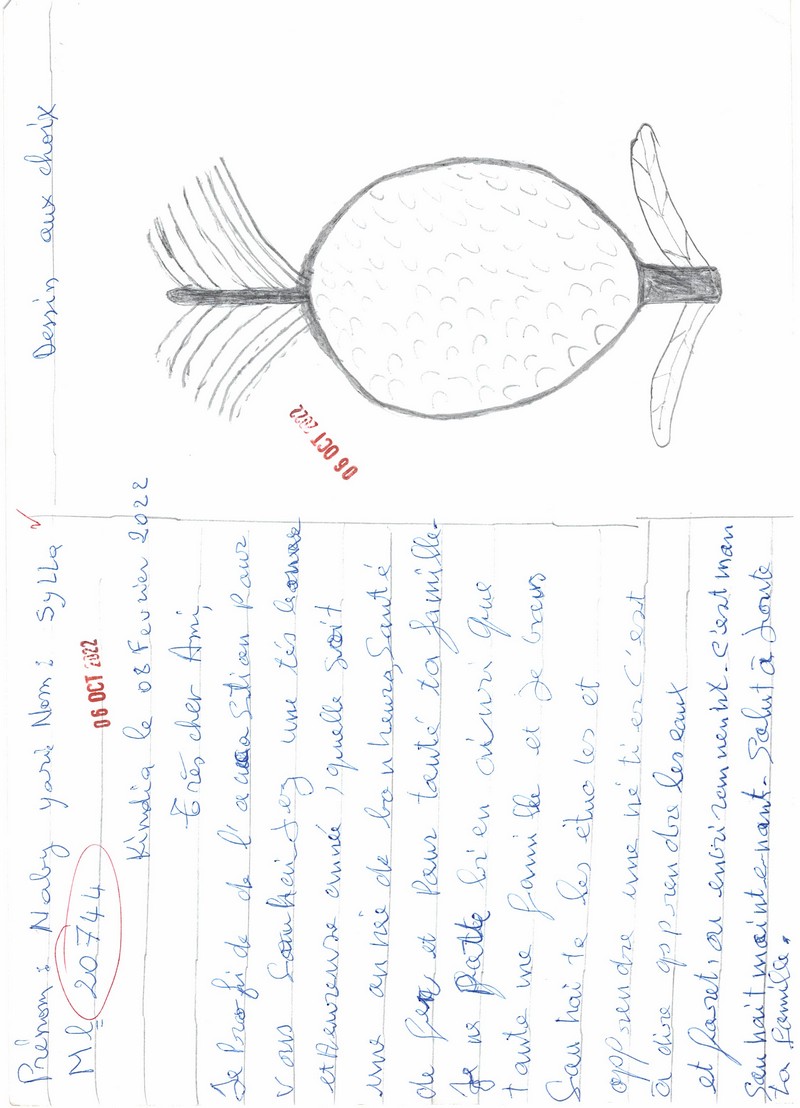 Prénom : Naby yari Nom : Sylla
Mle 20744
06 OCT 2022
Kindia le 08 Fevrier 2022
très cher Ami,
Je profide de l'accasition Pour
vous souhaitez une tés bonne
et heureuse année, quelle soit
une année de bonheurs, Santé
de et Pour tauté ta famille.
Je me Patte bien ainri que
taute me famille et je
Sauhaite les études et
apprendre une métier c'est
à dire apprendre les eaux
et foret, au environnement. c'est man
Sauhait maintenant. Salut à toute
ta famille.
Dessin aux choix
06 OCT 2022